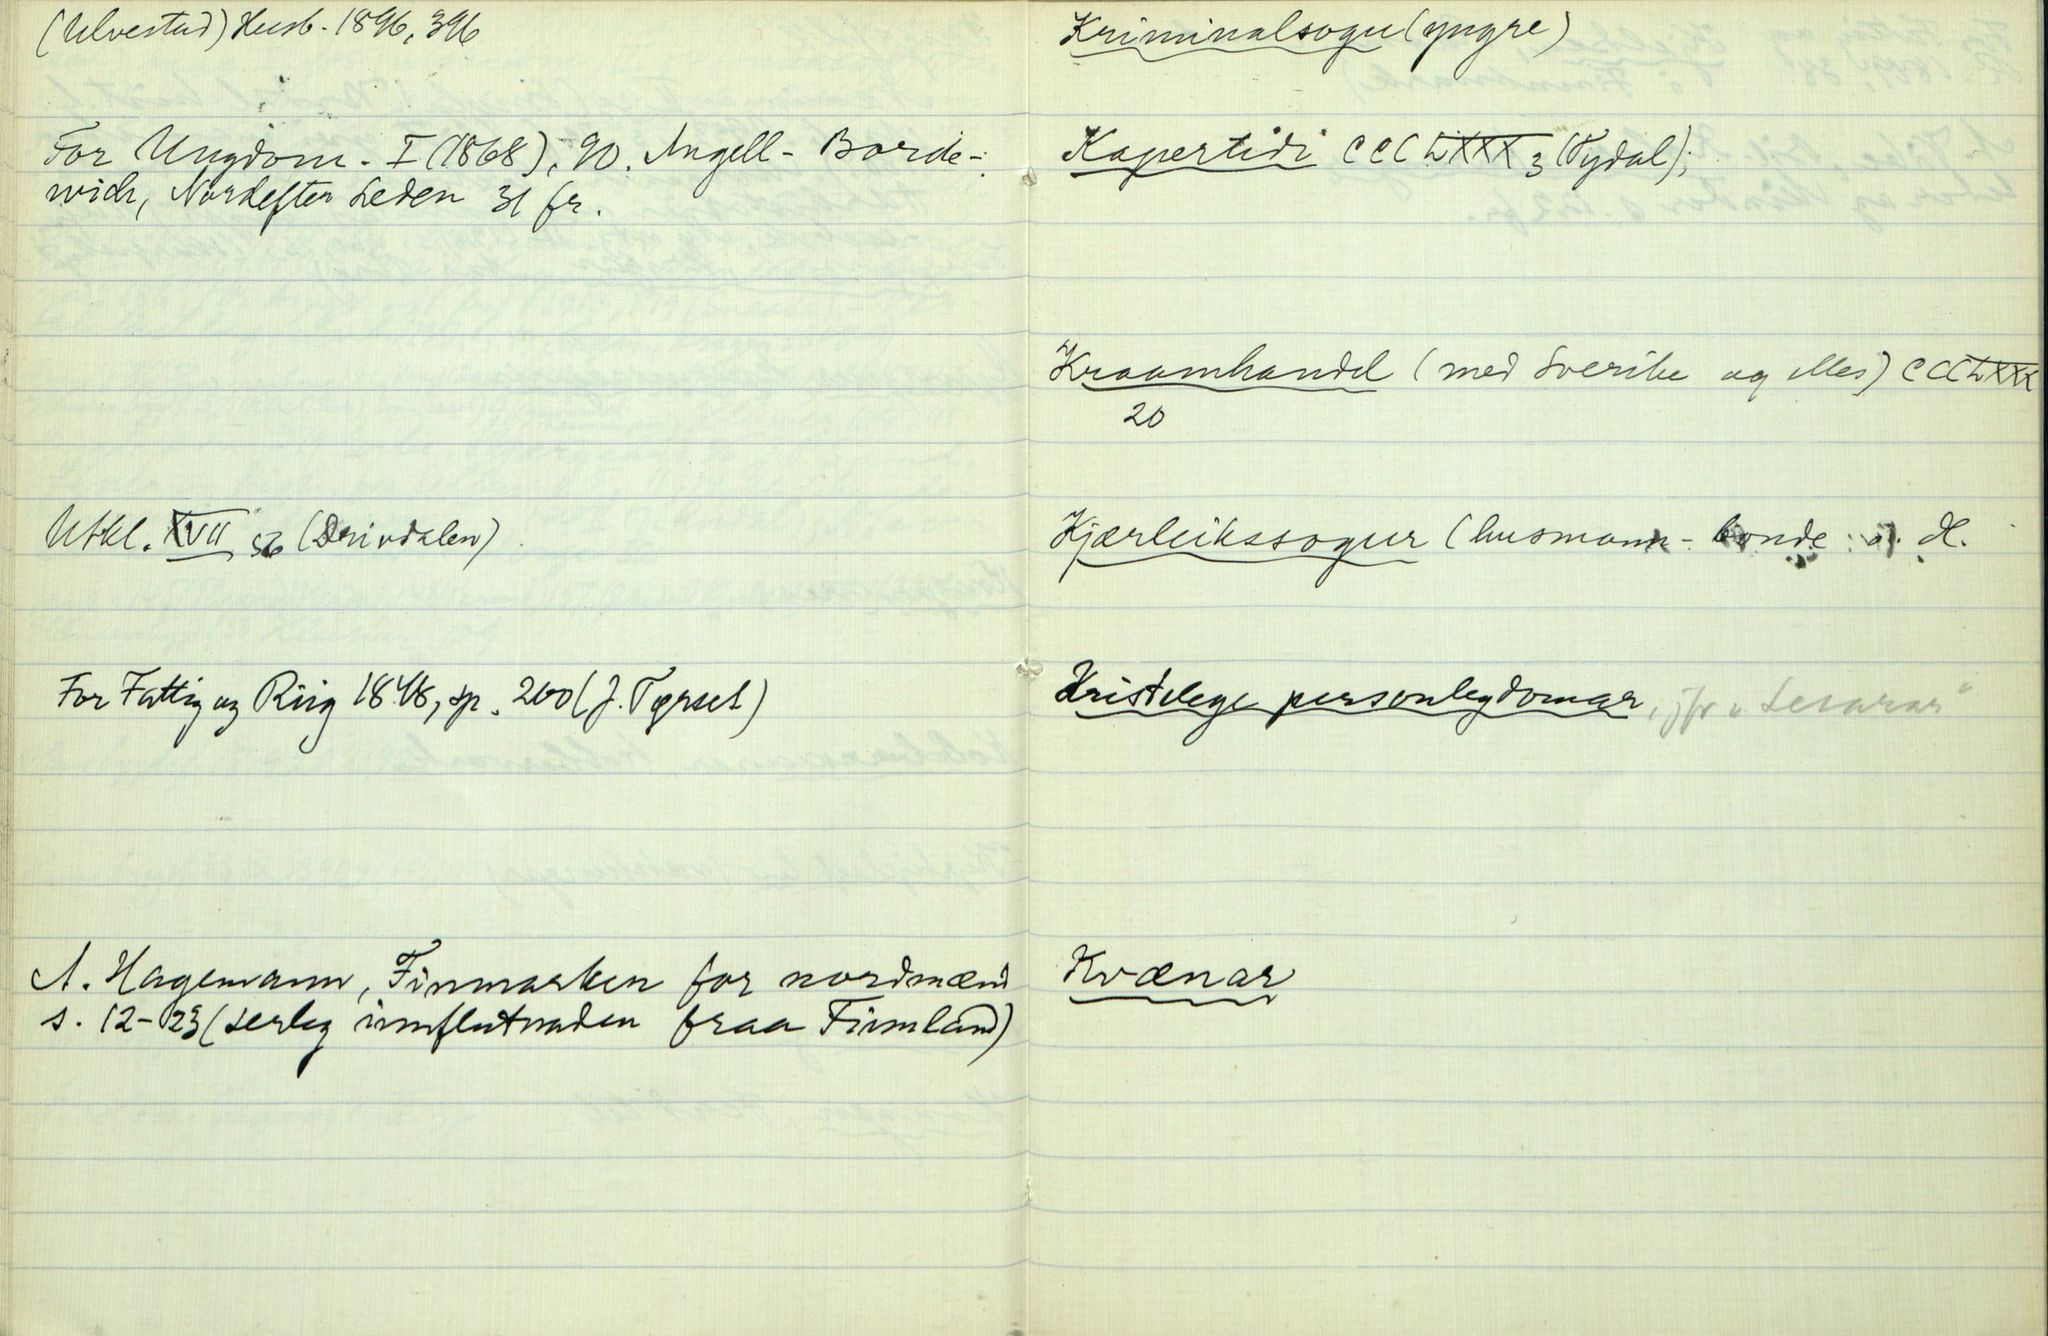 (Ulvestad) Husb. 1896, 396
For Ungdom. I (1868), 90. Angell - Borde-
wich, Nordefter Leden 31 fr.
Utkl. XVII 56 (Drivdalen)
For Fattig og Riig 1848, sp. 260 (J. Tørset)
A. Hagemann, Finmarken for nordmænd
s. 12-23 (serleg innflutnaden fraa Finnland)
Kriminalsogu (yngre)
Kapertidi CCCLXXX 3 (Tydal);
Kraamhandel (med Sverike og elles) CCCLXXX
20
Kjærleikssogur (husmann - bonde o. dl.
Kristelege personlegdomar, jfr „Lesarar“
Kvænar